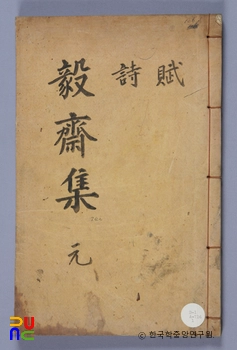 賦
詩
毅齋集 元
ⓒ 한국학중앙연구원